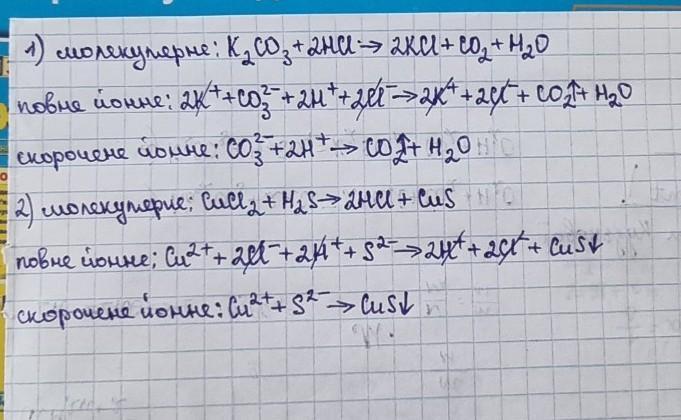 1) молекулярне: K₂CO₃ + 2HCl → 2KCl + CO₂ + H₂O
повне йонне: 2K⁺ + CO₃²⁻ + 2H⁺ + 2Cl⁻ → 2K⁺ + 2Cl⁻ + CO₂↑ + H₂O
скорочене йонне: CO₃²⁻ + 2H⁺ → CO₂↑ + H₂O
2) молекулярне: CuCl₂ + H₂S → 2HCl + CuS
повне йонне: Cu²⁺ + 2Cl⁻ + 2H⁺ + S²⁻ → 2H⁺ + 2Cl⁻ + CuS↓
скорочене йонне: Cu²⁺ + S²⁻ → CuS↓